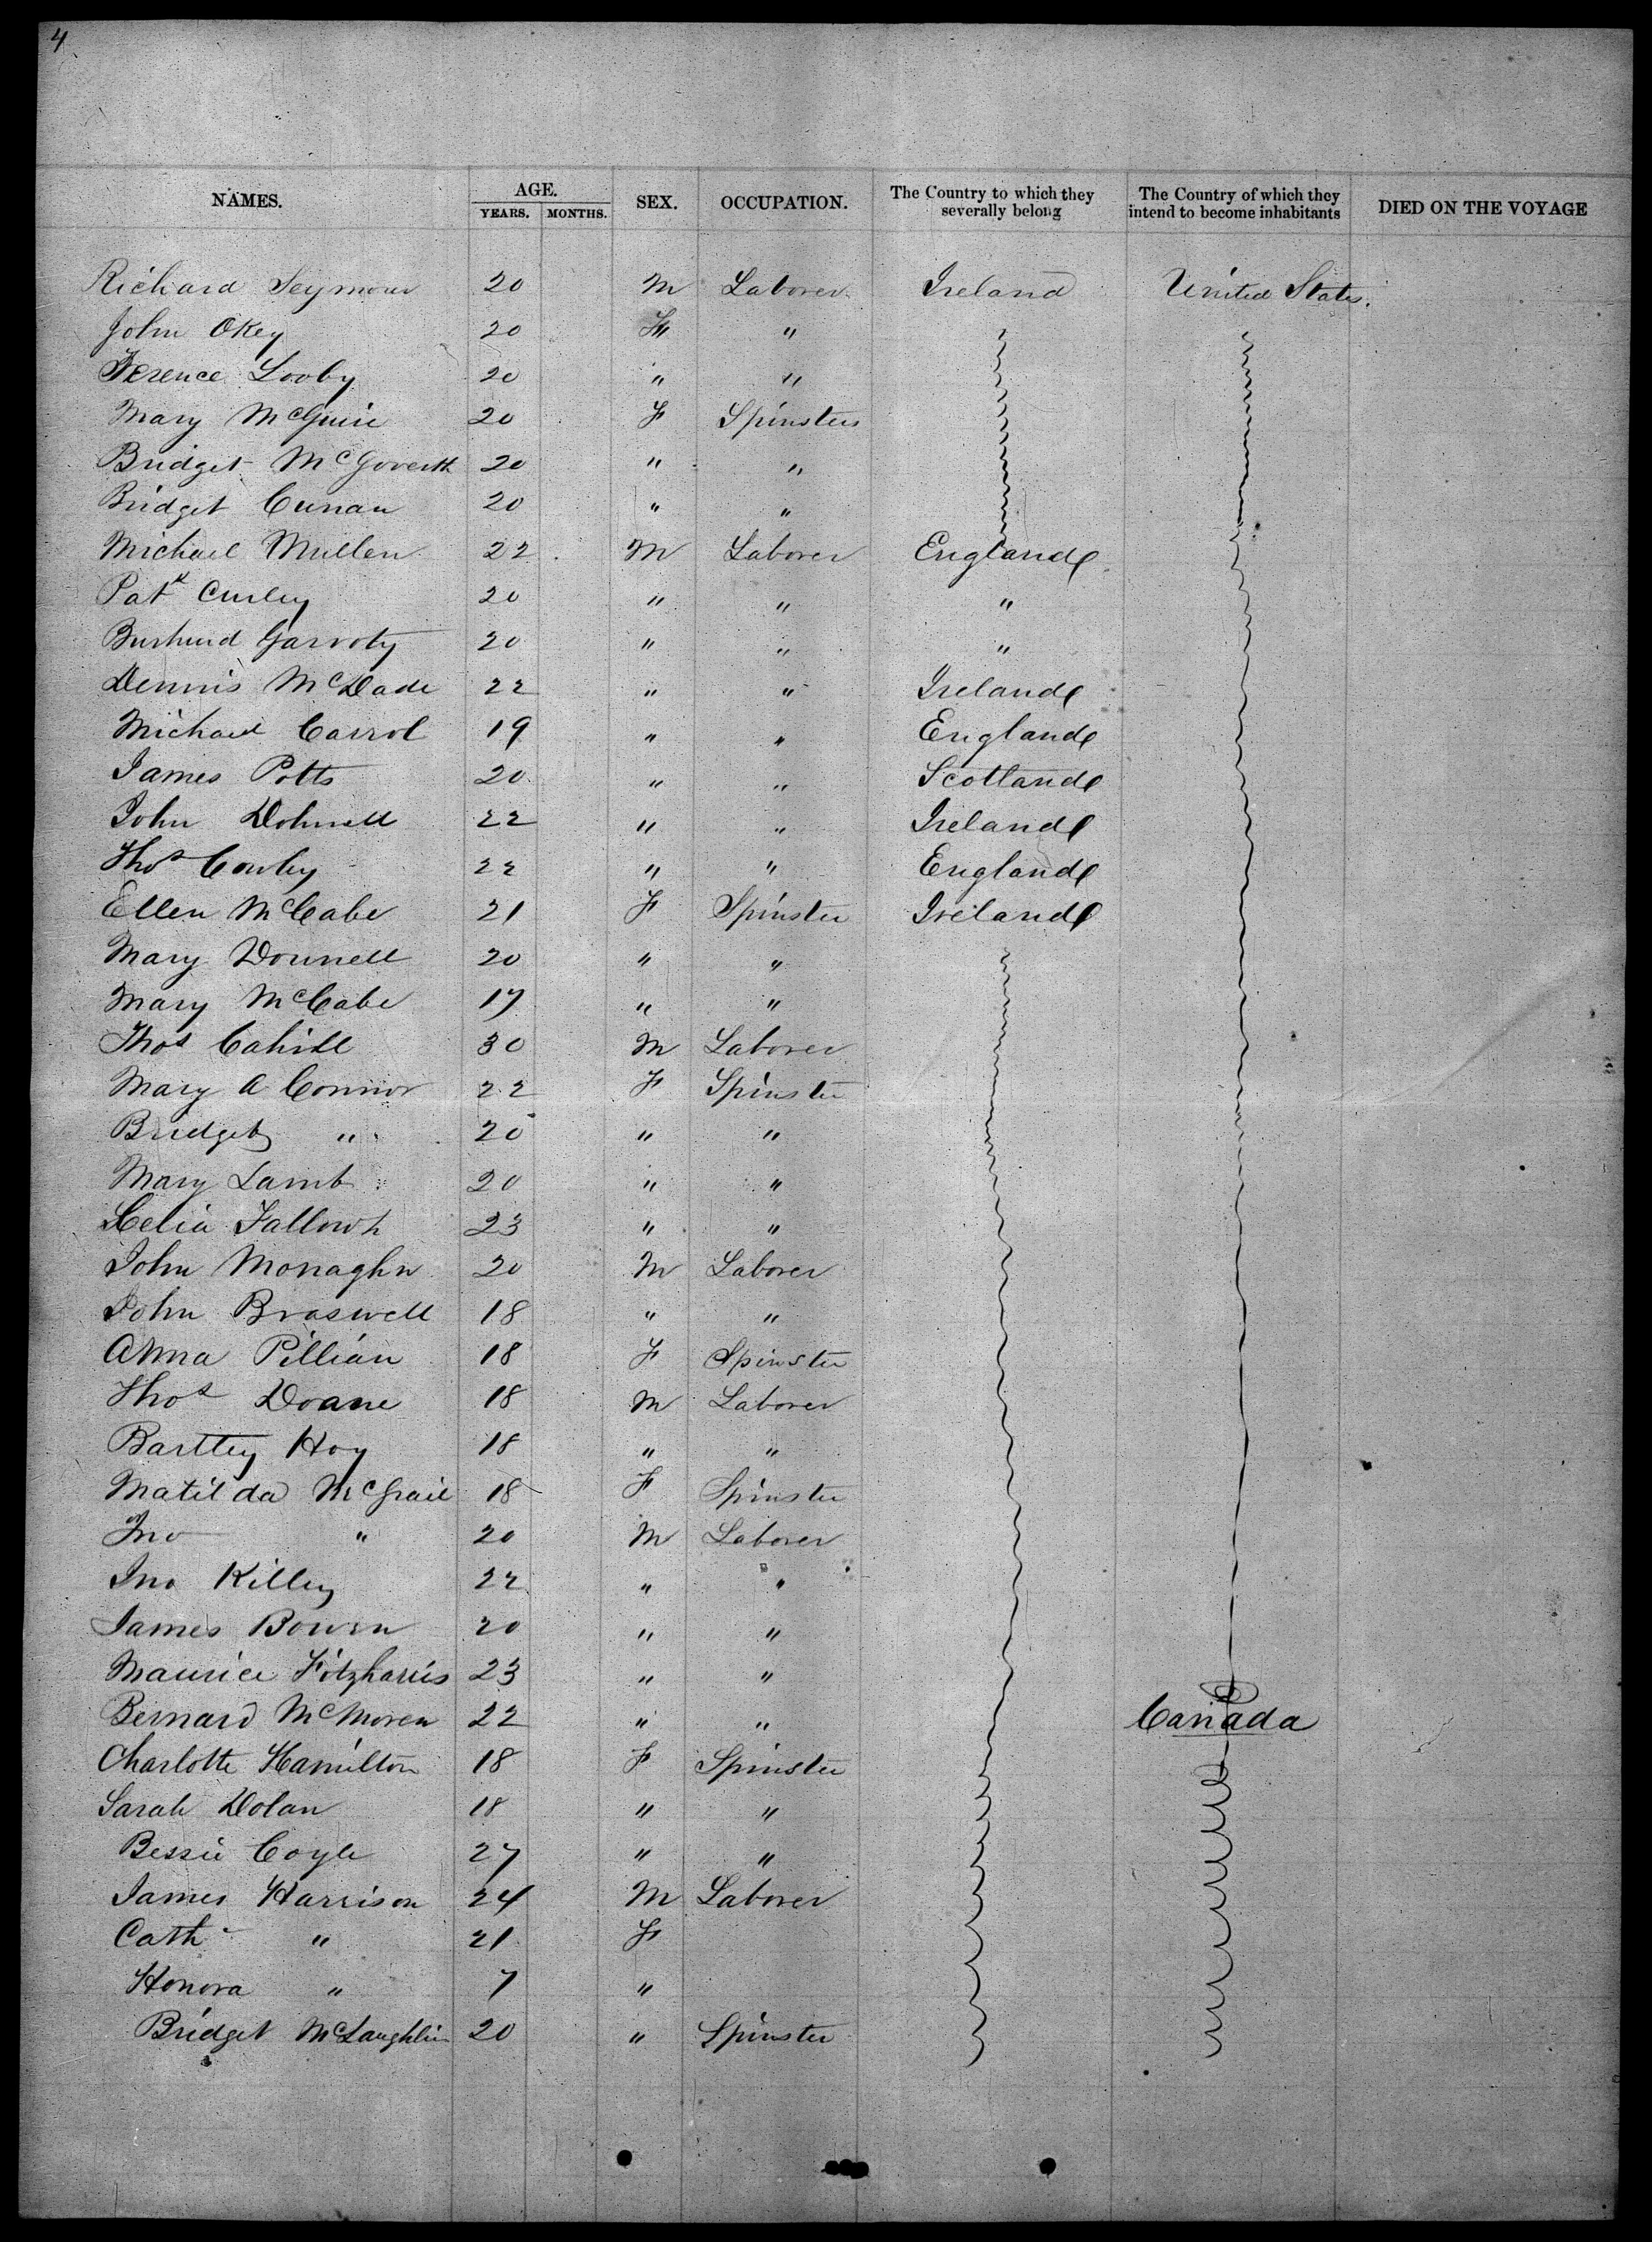 4
NAMES. AGE. YEARS. MONTHS. SEX. OCCUPATION. The Country to which they severally belong The Country of which they intend to become inhabitants DIED ON THE VOYAGE
Richard Seymour 20 M Laborer Ireland United States.
John Okey 20 "
Terence Looby 20 " "
Mary McGuire 20 F Spinsters
Bridget 20 " "
Bridget Cunan 20 " "
Michael Mullen 22 M Laborer England
Patk Curley 20 " " "
20 " " "
Dennis McDade 22 " " Ireland
Michael Carrol 19 " " England
James Potts 20 " " Scotland
John 22 " " Ireland
Thos 22 " " England
Ellen McCabe 21 F Spinster Ireland
Mary Donnell 20 " "
Mary McCabe 17 " "
Thos Cahill 30 M Laborer
Mary A Connor 22 F Spinster
Bridget " 20 " "
Mary Lamb 20 " "
Celia 23 " "
John Monaghn 20 M Laborer
John Braswell 18 " "
Anna Pillian 18 F Spinster
Thos Doane 18 M Laborer
Hoy 18 " "
Matilda McGrail 18 F Spinster
Jno " 20 M Laborer
Jno Killey 22 " "
James Bowen 20 " "
Maurice Fitzharris 23 " "
Bernard McMoren 22 " " Canada
Charlotte Hamilton 18 F Spinster
Sarah Dolan 18 " "
Bessie Coyle 27 " "
James Harrison 24 M Laborer
Cath " 21 F
Honora " 7 "
Bridget McLaughlin 20 " Spinster